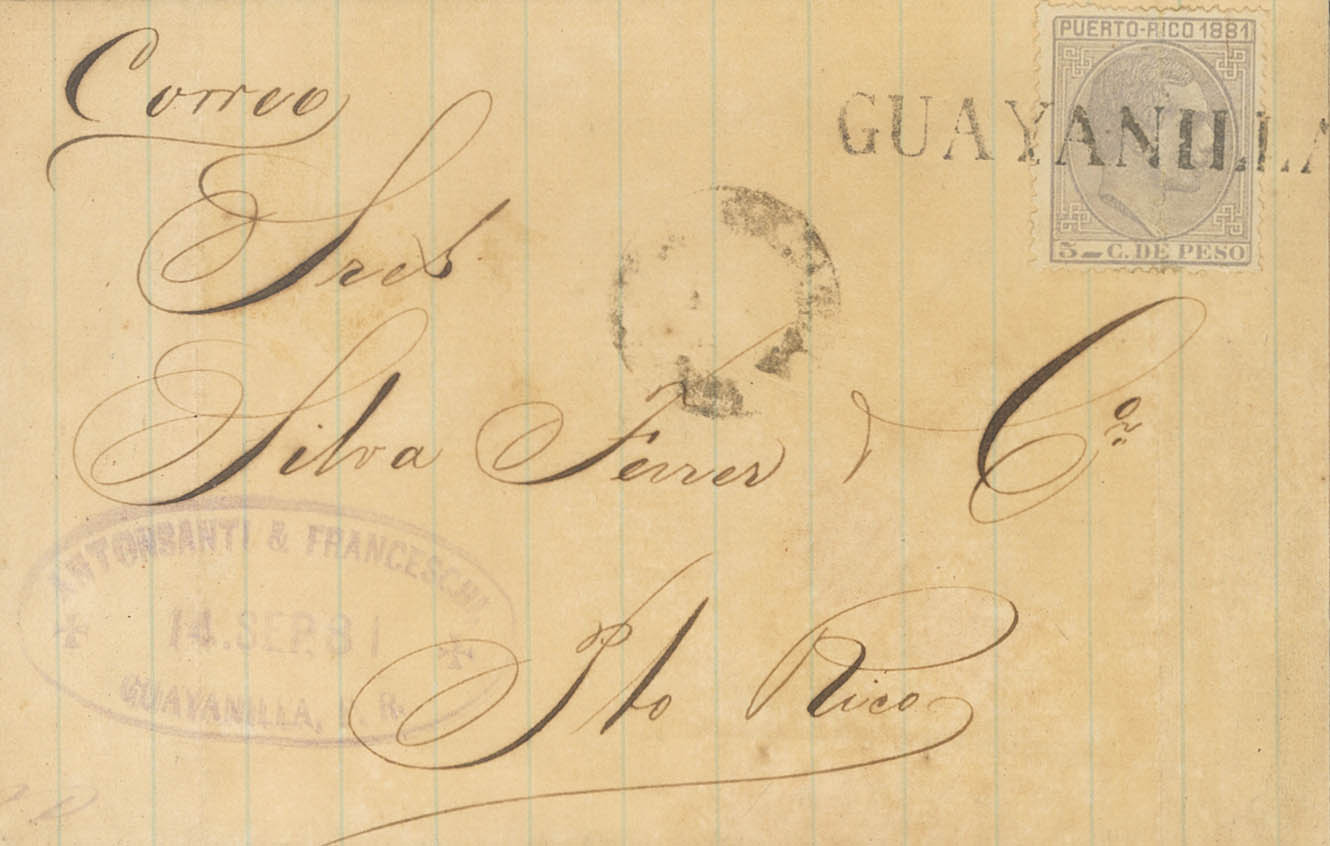 Correo
PUERTO-RICO 1881
GUAYANILLA
5 C. DE PESO
Sres
Silva Ferrer & Cª
ANTONSANTI & FRANCESCHI
14.SEP.81
GUAYANILLA, P. R.
Pto Rico